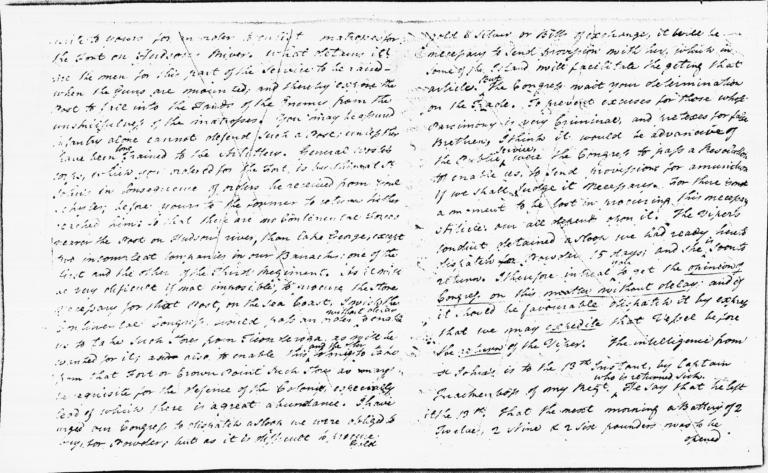 write to yours for an order to enlist matrosses for
the Fort on Hudsons River. What detains it?
are the men for this part of the Service to be raised
when the Guns are mounted; and thereby expose the
Post to fall into the Hands of the Enemy from the
unskilfulness of the matrosses. You may be assured
infantry alone cannot defend such a Post, unless they
have been trained to the Artillery. General
Corps, which you ordered for the Fort, is
Johns in Consequence of orders he received from Genl
before yours to the former to return hither
reached him: So that there are no Continental Forces
nearer the Post on Hudsons river, than Lake George, except
two incomplete Companies in our Barracks: one of the
first and the other of the Third Regiment. As it will
be very difficult if not impossible, to procure the Stores
necessary for that Post, on the Sea Coast. I wish the
Continental Congress, would pass an order without delay to enable
us to take such Stores from Tionderoga, as will be
wanted for it; also to enable this to take
from that Fort or Crown Point such Stores as may
be requisite for the Defence of the Colony, especially
Lead of which there is a great abundance. I have
urged our Congress to dispatch a Sloop we were obliged to
buy, for Powder; but as it is difficult to procure
Gold
Gold & Silver or Bills of exchange, it will be
necessary to send provision with her, which in
some of the Island will facilitate the geting that
article. But the Congress wait your determination
on the Trade. To prevent excuses for those whose
Parsimony is very Criminal, and relaxes for
Brethren, I think it would be advancive of
the Public Service, were the Congress to pass a Resolution
to enable us, to send Provisions for amunition
If we shall Judge it Necessary. For there is not
a moment to be lost in procuring this necessary
Article. our all depend upon it. The Viper's
conduct detained a Sloop we had ready here to
dispatch for Powder 15 days; and she is soon to
return. I therefore intreat to get the opinion of
Congress on this matter without delay; and if
it should be favourable dispatch it by express
that we may expedite that Vessel before
the return of the Viper. The intelligence from
St Johns, is to the 13th Instant, by Captain
of my Regt. who is returned sick. He Say that he left
it the 13th. That the next morning a Battery of 2
Twelve, 2 Nine & 2 Six pounders was to be
opened